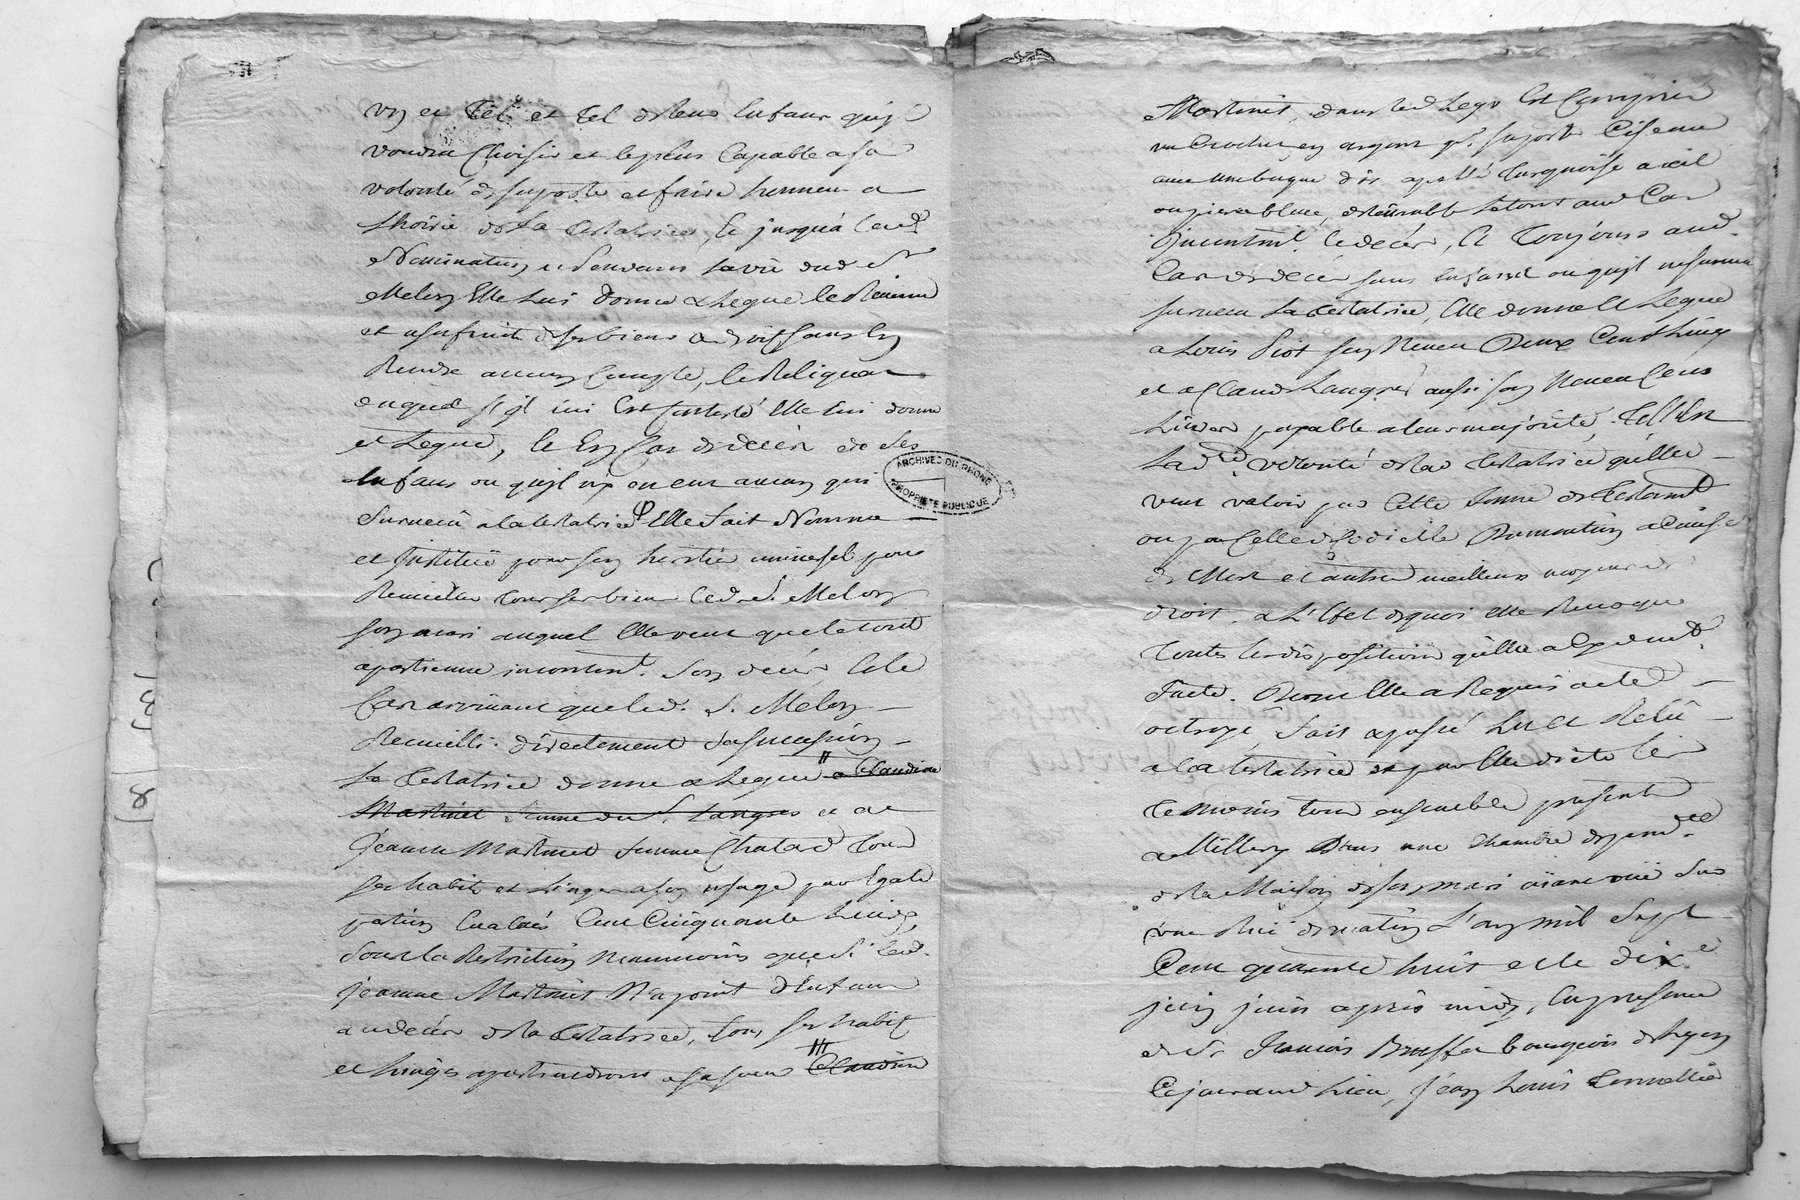 un et tel et tel de leurs enfans quil
voudra choisir et le plus capable a sa
volonté de suporter et faire honneur a
l'hoirie de la testatrice, et jusqu'à lad.
Nomination et pendant la vie dud. Sr
Melon Elle lui donne & legue le Revenu
et usufruit de ses biens
Rendre aucun Compte, le Reliqua
duquel lui Elle lui donne
et Legue, et En Cas de decés de ses
enfans ou quil ny en eut aucun qui
survecu a la testatrice Elle fait Nomme
et Institue pour son heritier universel pour
Recueillir tous ses biens led. S. Melon
son mari auquel Elle veut que le tout
apartienne incontint. son decés, et le
Cas arrivant que led. S. Melon
Recueilli directement sa succession
la testatrice donne & legue a Claudine
Martinet femme du S. Langres et a
Jeanne Martinet femme Chatard tous
ses habits et linges a son usage par Egale
portion Evalués Cent Cinquante Livres
sous la Restriction neanmoins que si lad.
Jeanne Martinet N'a point d'Enfans
au decés de la testatrice, tous ses habits
et linges apartiendront a sa soeur Claudine
Martinet, dans led. Legs Est Compris
un Crochet en argent pr. suporter Ciseaux
avec une bague d'or apellé turquoise a oeil
ou pierre bleue, ensemble le tout aud. Cas
incontint. le decés, Et toujours aud.
Cas de decés sans enfans ou quil
survecu la testatrice, Elle donne et Legue
a Louis Piot son Neveu Deux Cent Livres
et a Claude Langres aussi son Neveu Cent
Livres payable a leur majorité, telle Est
la dre. volonté de la testatrice quelle
veut valoir par cette forme de testament
ou par Celle de Codicille Donnation a Cause
de Mort et autres meilleurs moyens de
droit, a L'Efet dequoi elle Revoque
toutes les dispositions quelle a Cy devt.
faite. Dont Elle a Requis acte
octroyé fait a Lu et Relû
a la testatrice et par Elle dicté les
temoins tous ensemble presents
a Millery Dans une Chambre
de la Maison de son mari aïant vüe sur
une Rüe du matin L'an mil Sept
Cent quarante huit et le dixe.
jour juin après midy, En presence
de Sr. François bourgeois de Lyon
de ce jour aud. Lieu, Jean Louis
ARCHIVES DU RHONE
PROPRIÉTÉ PUBLIQUE